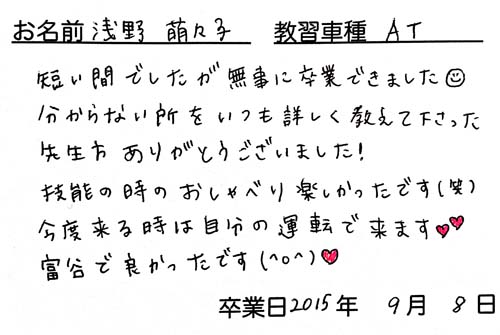 お名前 浅野 萌々子 教習車種 AT
短い間でしたが無事に卒業できました☺
分からない所をいつも詳しく教えて下さった
先生方ありがとうございました!
技能の時のおしゃべり楽しかったです(笑)
今度来る時は自分の運転で来ます♥♥
富谷で良かったです(^o^)♥
卒業日2015年 9月 8日